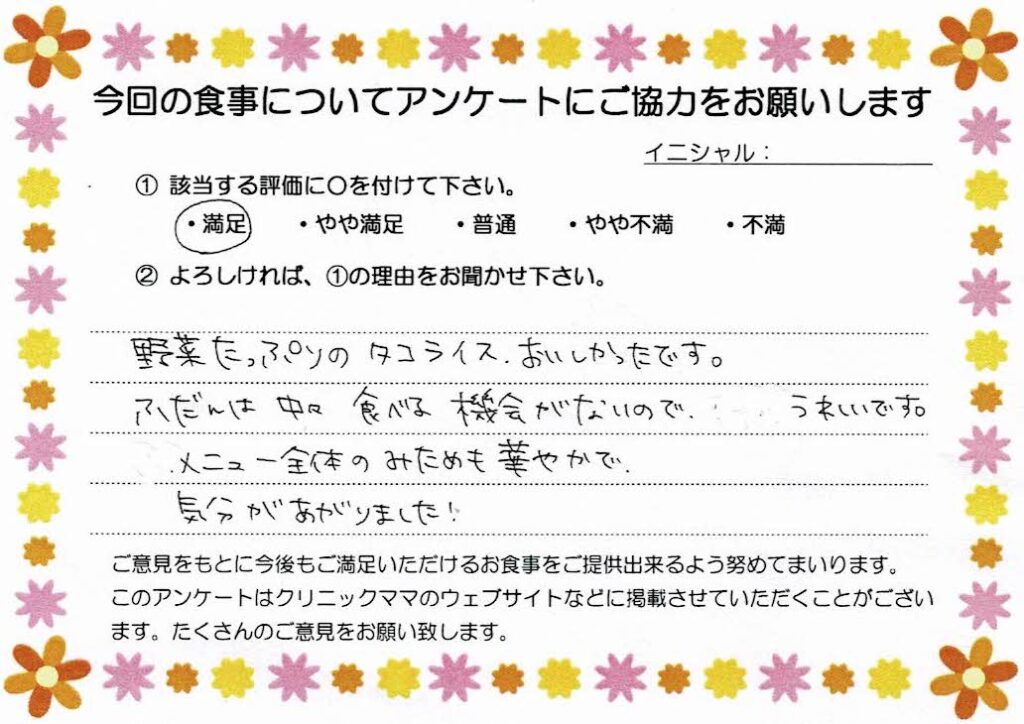 今回の食事についてアンケートにご協力をお願いします
イニシャル：
① 該当する評価に〇を付けて下さい。
・満足 ・やや満足 ・普通 ・やや不満 ・不満
② よろしければ、①の理由をお聞かせ下さい。
野菜たっぷりの タコライス、おいしかったです。
ふだんは 中々 食べる 機会がないので、 うれしいです。
メニュー全体の みためも 華やかで、
気分が あがりました!
ご意見をもとに今後もご満足いただけるお食事をご提供出来るよう努めてまいります。
このアンケートはクリニックママのウェブサイトなどに掲載させていただくことがござい
ます。たくさんのご意見をお願い致します。